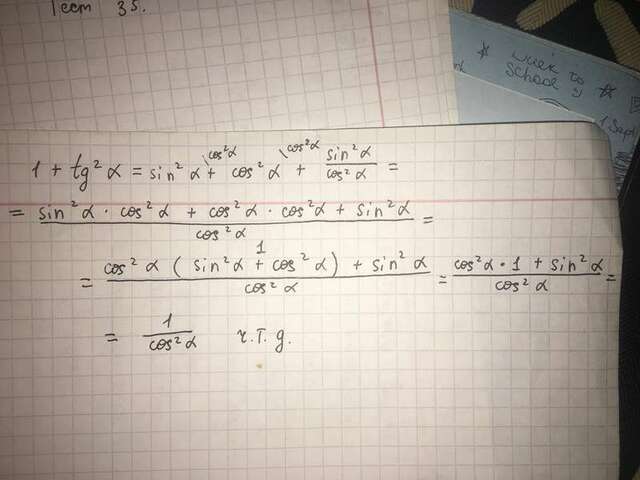 Тест 35.
week to
school
1 Sept
1 + tg² α = sin² α \cos²α + cos² α \cos²α + sin² α / cos² α =
= (sin² α · cos² α + cos² α · cos² α + sin² α) / cos² α =
= (cos² α ( sin² α + cos² α ) + sin² α) / cos² α = (cos² α · 1 + sin² α) / cos² α =
1
= 1 / cos² α ч.т.д.